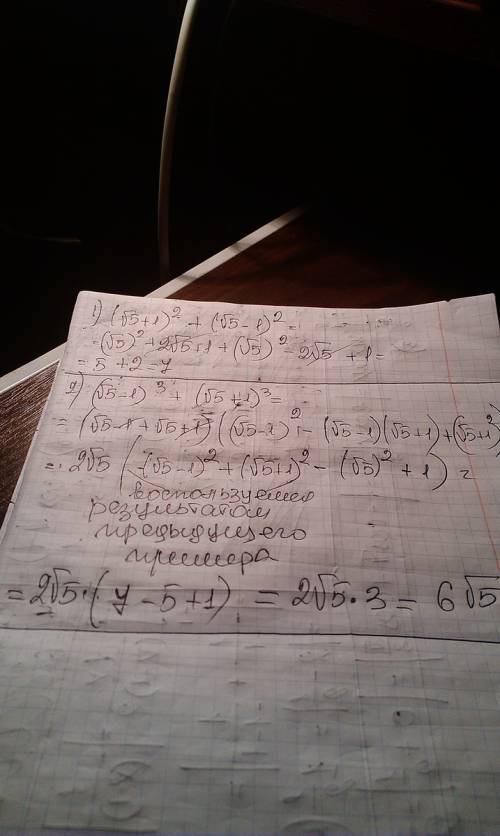 1) (√5+1)² + (√5-1)² =
= (√5)² + 2√5+1 + (√5)² - 2√5 + 1 =
= 5 + 2 = 7
2) (√5-1)³ + (√5+1)³ =
= (√5-1 + √5+1) ((√5-1)² - (√5-1)(√5+1) + (√5+1)²)
= 2√5 ((√5-1)² + (√5+1)² - (√5)² + 1) =
воспользуемся
результатом
предыдущего
примера
= 2√5 · (7 - 5 + 1) = 2√5 · 3 = 6√5